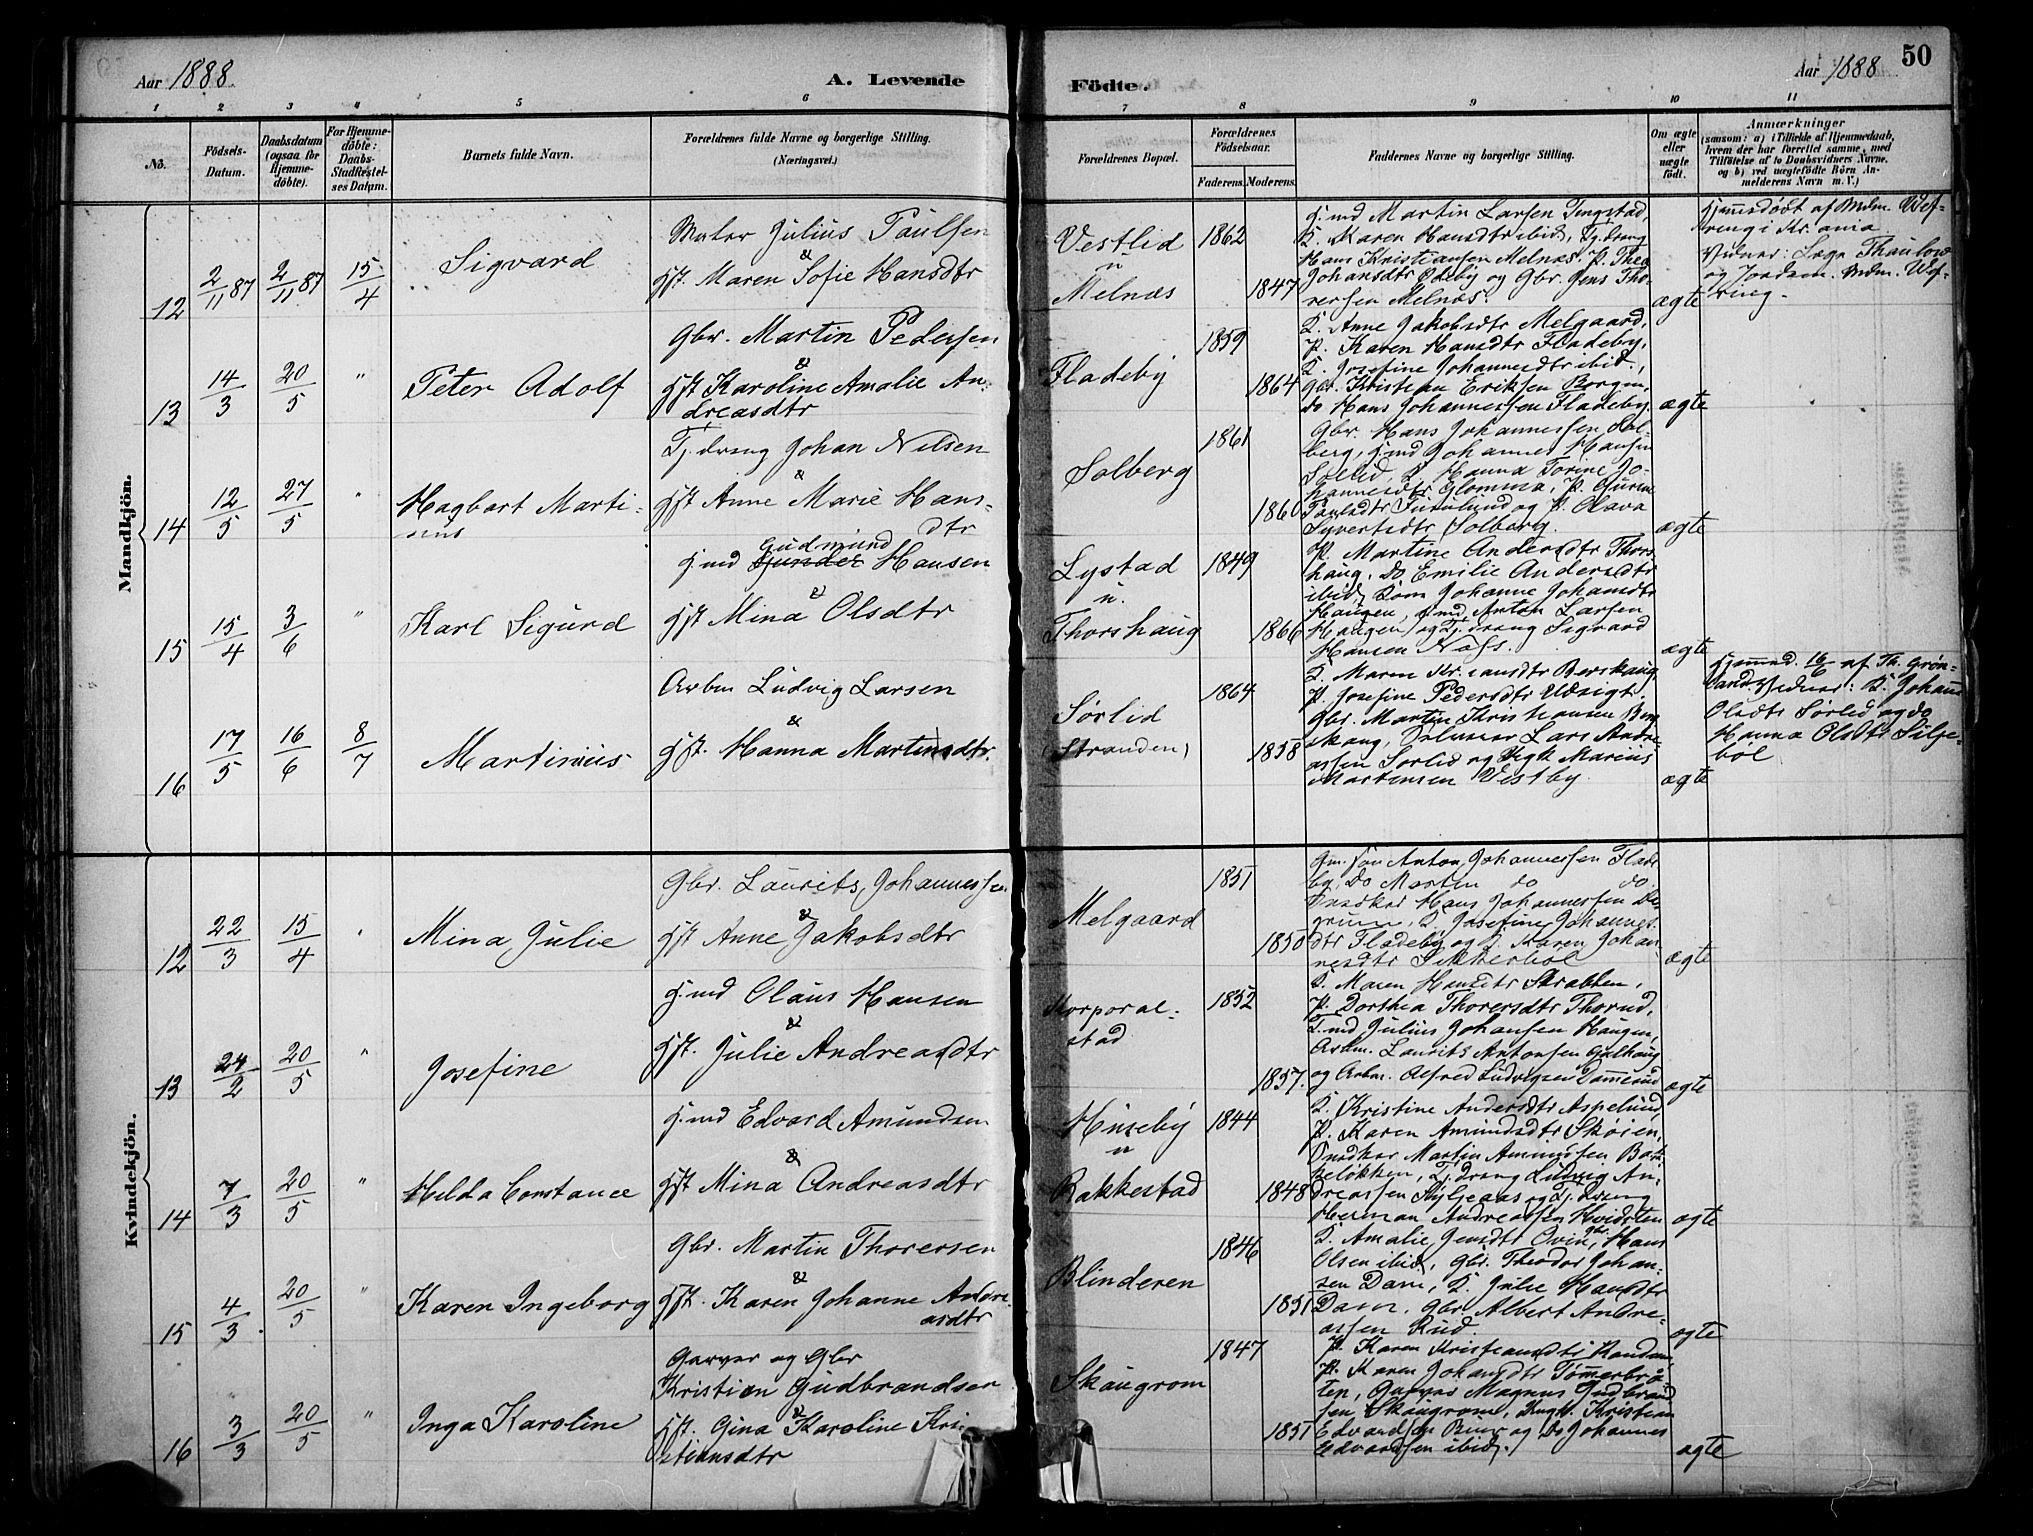 Aar 1888.
A. Levende
Födte.
Aar 1888
50
1 2 3 4 5 6 7 8 9 10 11
No.
Födsels-
Datum.
Daabsdatum
(ogsaa for
Hjemme-
döbte).
For Hjemme-
döbte:
Daabs-
Stadfæstel-
ses Datum.
Barnets fulde Navn.
Forældrenes fulde Navne og borgerlige Stilling.
(Næringsvei.)
Forældrenes Bopæl.
Forældrenes
Födselsaar.
Faderens.
Moderens.
Faddernes Navne og borgerlige Stilling.
Om ægte
eller
uægte
födt.
Anmærkninger
(saasom: a) i Tilfælde af Hjemmedaab,
hvem der har forrettet samme, med
Tilföielse af to Daabsvidners Navne.
og b) ved uægtefödte Börn An-
melderens Navn m. V.)
Mandkjön.
12
2/11 87
2/11 87
15/4
Sigvard
Maler Julius Paulsen
&
Gft. Maren Sofie Hansdtr
Vestlid
u
Melnæs
1862
1847
Gmd Martin Larsen Tengstad,
K. Karen Hansdtr ibid, Tj. dreng
Hans Kristiansen Melnæs, P. Thea
Johansdtr Fladeby og Gbr. Jens Tho-
rersen Melnæs.
ægte
Hjemmedöbt af Mdm. Wef-
ring i Kr.ania.
Vidner: Læge Thaulow
og Jordem. Mdm. Wef-
ring.
13
14/3
20/5
"
Peter Adolf
Gbr. Martin Pedersen
&
Gft Karoline Amalie An-
dreasdtr
Fladeby
1859
1864
K. Anne Jakobsdtr Melgaard,
P. Karen Hansdtr Fladeby,
K. Josefine Johannesdtr ibid.,
Gbr. Kristian Eriksen Borgen,
do Hans Johannessen Fladeby.
ægte
14
12/5
27/5
"
Hagbart Marti-
nus
Tj. dreng Johan Nilsen
&
Gft Anne Marie Hans-
dtr
Solberg
1861
1860
Gbr. Hans Johannessen Sol-
berg, Gmd Johannes Hansen
Sollid, K. Hanna Torine Jo-
hannesdtr Glomma, P. Gurine
Paulsdtr Furulund og P. Olava
Syvertsdtr Solberg.
ægte
15
15/4
3/6
"
Karl Sigurd
Gudmund
Gmd Gunder Hansen
&
Gft Mina Olsdtr
Lystad
u.
Thorshaug
1849
1866
P. Martine Andersdtr Thors-
haug, Do Emilie Andersdtr
ibid, Kone Johanne Johansdtr
Haugen, Gmd Anton Larsen
Haugen og Tj. dreng Sigvard
Hansen Næss.
ægte
16
17/5
16/6
8/7
Martinius
Arbm Ludvig Larsen
&
Gft. Hanna Martinsdtr.
Sørlid
(Stranden)
1864
1858
K. Maren Kristiansdtr Berskaug
P. Josefine Pedersdtr Udsigt,
Gbr. Martin Kristiansen Ber-
skaug, Andre-
assen Sørlid og Ungk Marius
Mortensen Vestby.
ægte
Hjemmed. 16/6 af Th. Grøn-
land. Vidner: K. Johanne
Olsdtr Sørlid og do
Hanna Olsdtr Silje-
böl
Kvindekjön.
12
22/3
15/4
"
Mina Julie
Gbr. Laurits Johannessen
&
Gft Anne Jakobsdtr
Melgaard
1851
1850
Gm. søn Anton Johannessen Flade-
by, Do Morten do do
Snedker Hans Johannessen
K. Josefine Johannes-
dtr Fladeby og K. Karen Johan-
nesdtr Sikkerböl
ægte
13
24/2
20/5
"
Josefine
Gmd Olaus Hansen
&
Gft. Julie Andreasdtr
Korporal-
stad
1852
1857.
K. Maren Hansdtr Skrabben,
P. Dorthea Thorersdtr Thorud,
Gmd Julius Johansen Haugen,
Arbm. Laurits Antonsen Galhaug
og Arbm. Alfred Ludvigsen Dammerud
ægte
14
7/3
20/5
"
Hilda Constance
Gmd Edvard Amundsen
&
Gft Mina Andreasdtr
Huseby
u
Bakkestad
1844
1848
K. Kristine Andersdtr Aspelund
P. Karen Amundsdtr Skøien,
Snedker Martin Amundsen Bak-
keløkken, Tj. dreng Ludvig An-
dreassen og Tj. dreng
Herman Andreassen Hvidsten
ægte
15
4/3.
20/5
"
Karen Ingeborg
Gbr. Martin Thorersen
&
Gft. Karen Johanne Andre-
asdtr
Blinderen
1846
1851
K. Amalie Jensdtr Ovin, Gbr. Hans
Olsen ibid, Gbr. Theodor Johan-
sen Dam, K. Julie Hansdtr
Dam, Gbr. Albert Andre-
assen Rud.
ægte
16
3/3
20/5
"
Inga Karoline
Garver og Gbr
Kristian Gudbrandsen
&
Gft. Gina Karoline Kri-
stiansdtr
Skaugrom
1847
1851
P. Karen Kristiansdtr Randem,
P. Karen Johansdtr Tømmerbrå-
ten, Garver Magnus Gudbrand-
sen Skaugrom, Ungk. Kristian
Edvardsen Riser og Do Johannes
Edvardsen ibid.
ægte